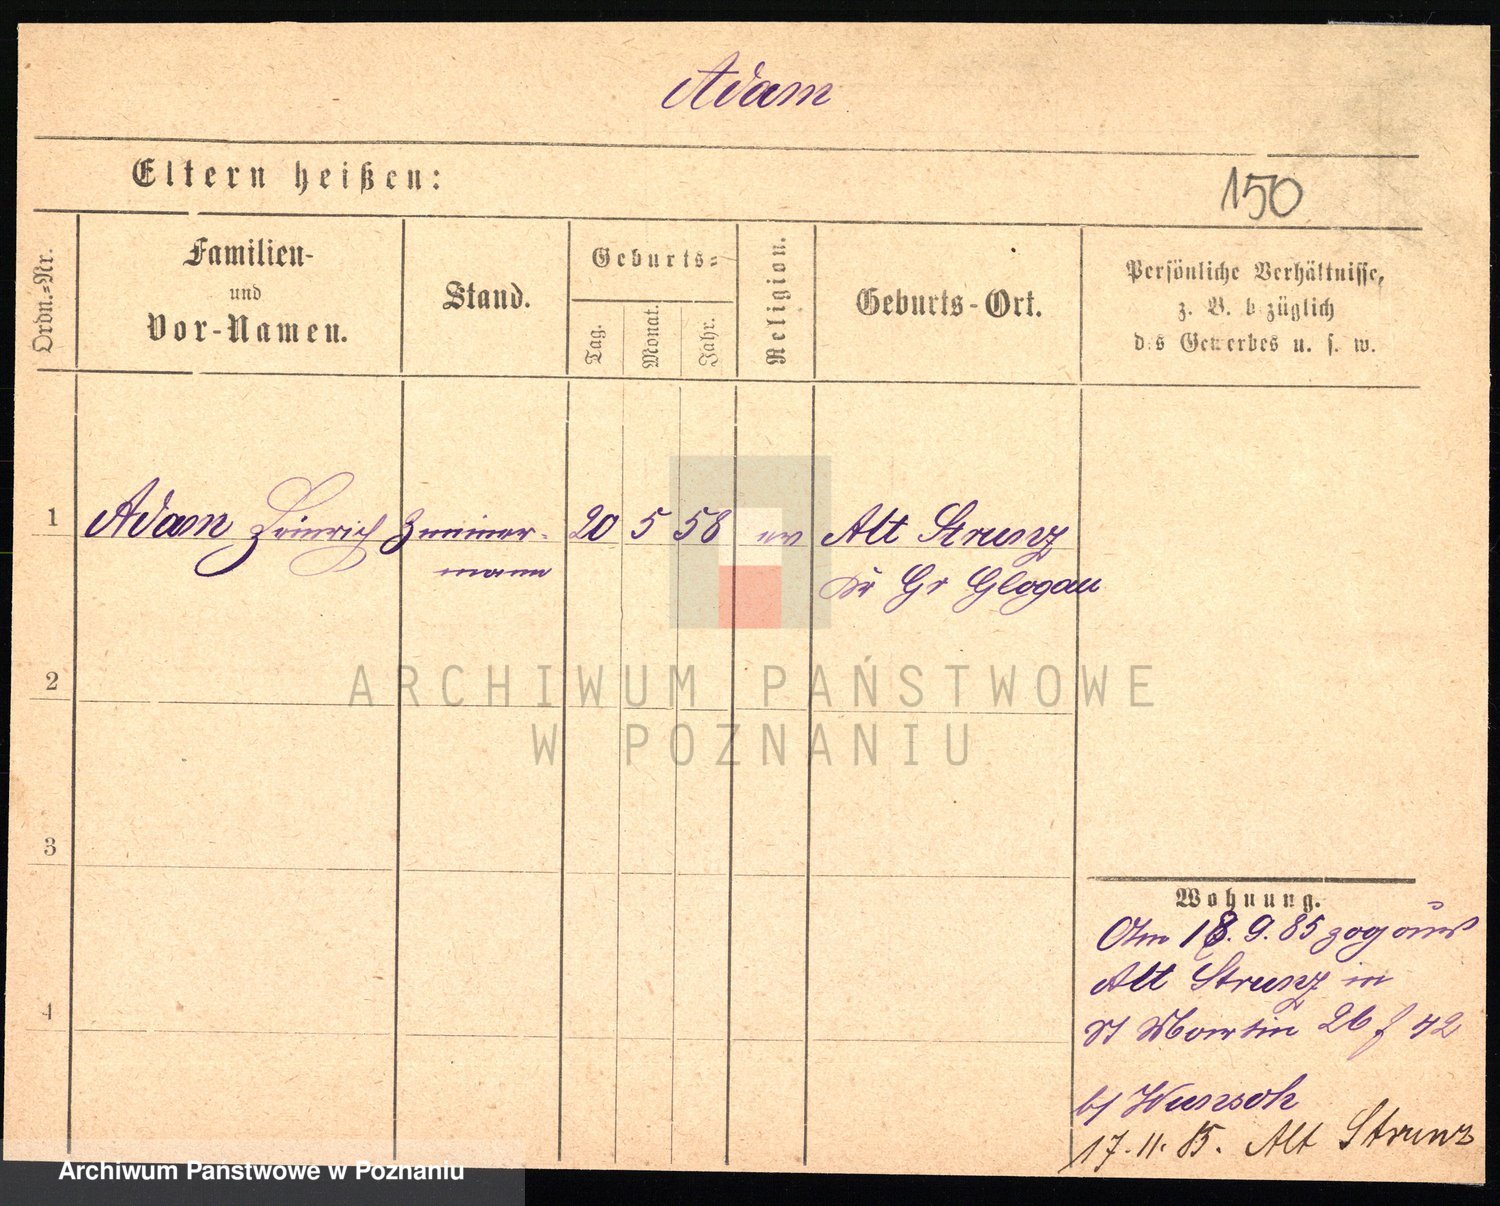 Adam
Eltern heißen:
150
Ordn.=Nr.
Familien-
und
Vor-Namen.
Stand.
Geburts=
Tag.
Monat.
Jahr.
Religion.
Geburts-Ort.
Persönliche Verhältnisse,
z. B. bezüglich
des Gewerbes u. s. w.
1 Adam Heinrich Zimmer- 20 5 58 ev Alt Strunz
mann Kr Gr Glogau
2
3
4
Wohnung.
Am 18.9.85 zog aus
Alt Strunz in
St Martin 26 f 42
b/ Wunsch
17.11.85. Alt Strunz
ARCHIWUM PAŃSTWOWE
W POZNANIU
Archiwum Państwowe w Poznaniu